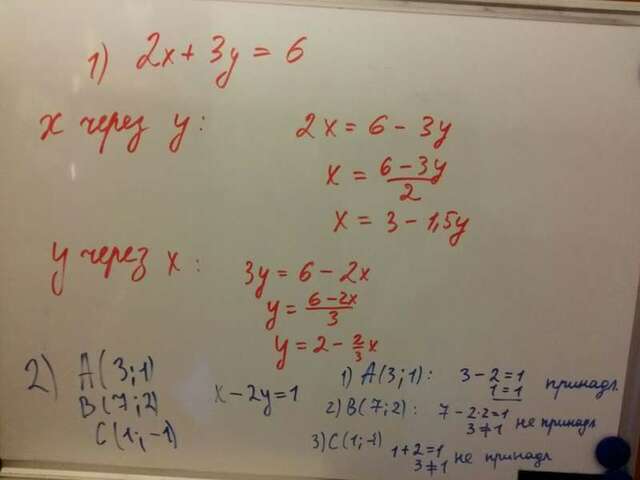 1) 2x + 3y = 6
x через y:
2x = 6 - 3y
x = \frac{6 - 3y}{2}
x = 3 - 1,5y
y через x:
3y = 6 - 2x
y = \frac{6 - 2x}{3}
y = 2 - \frac{2}{3}x
2) A(3;1)
B(7;2)
C(1;-1)
x - 2y = 1
1) A(3;1): 3 - 2 = 1
1 = 1 принадл.
2) B(7;2): 7 - 2·2 = 1
3 ≠ 1 не принадл
3) C(1;-1) 1 + 2 = 1
3 ≠ 1 не принадл